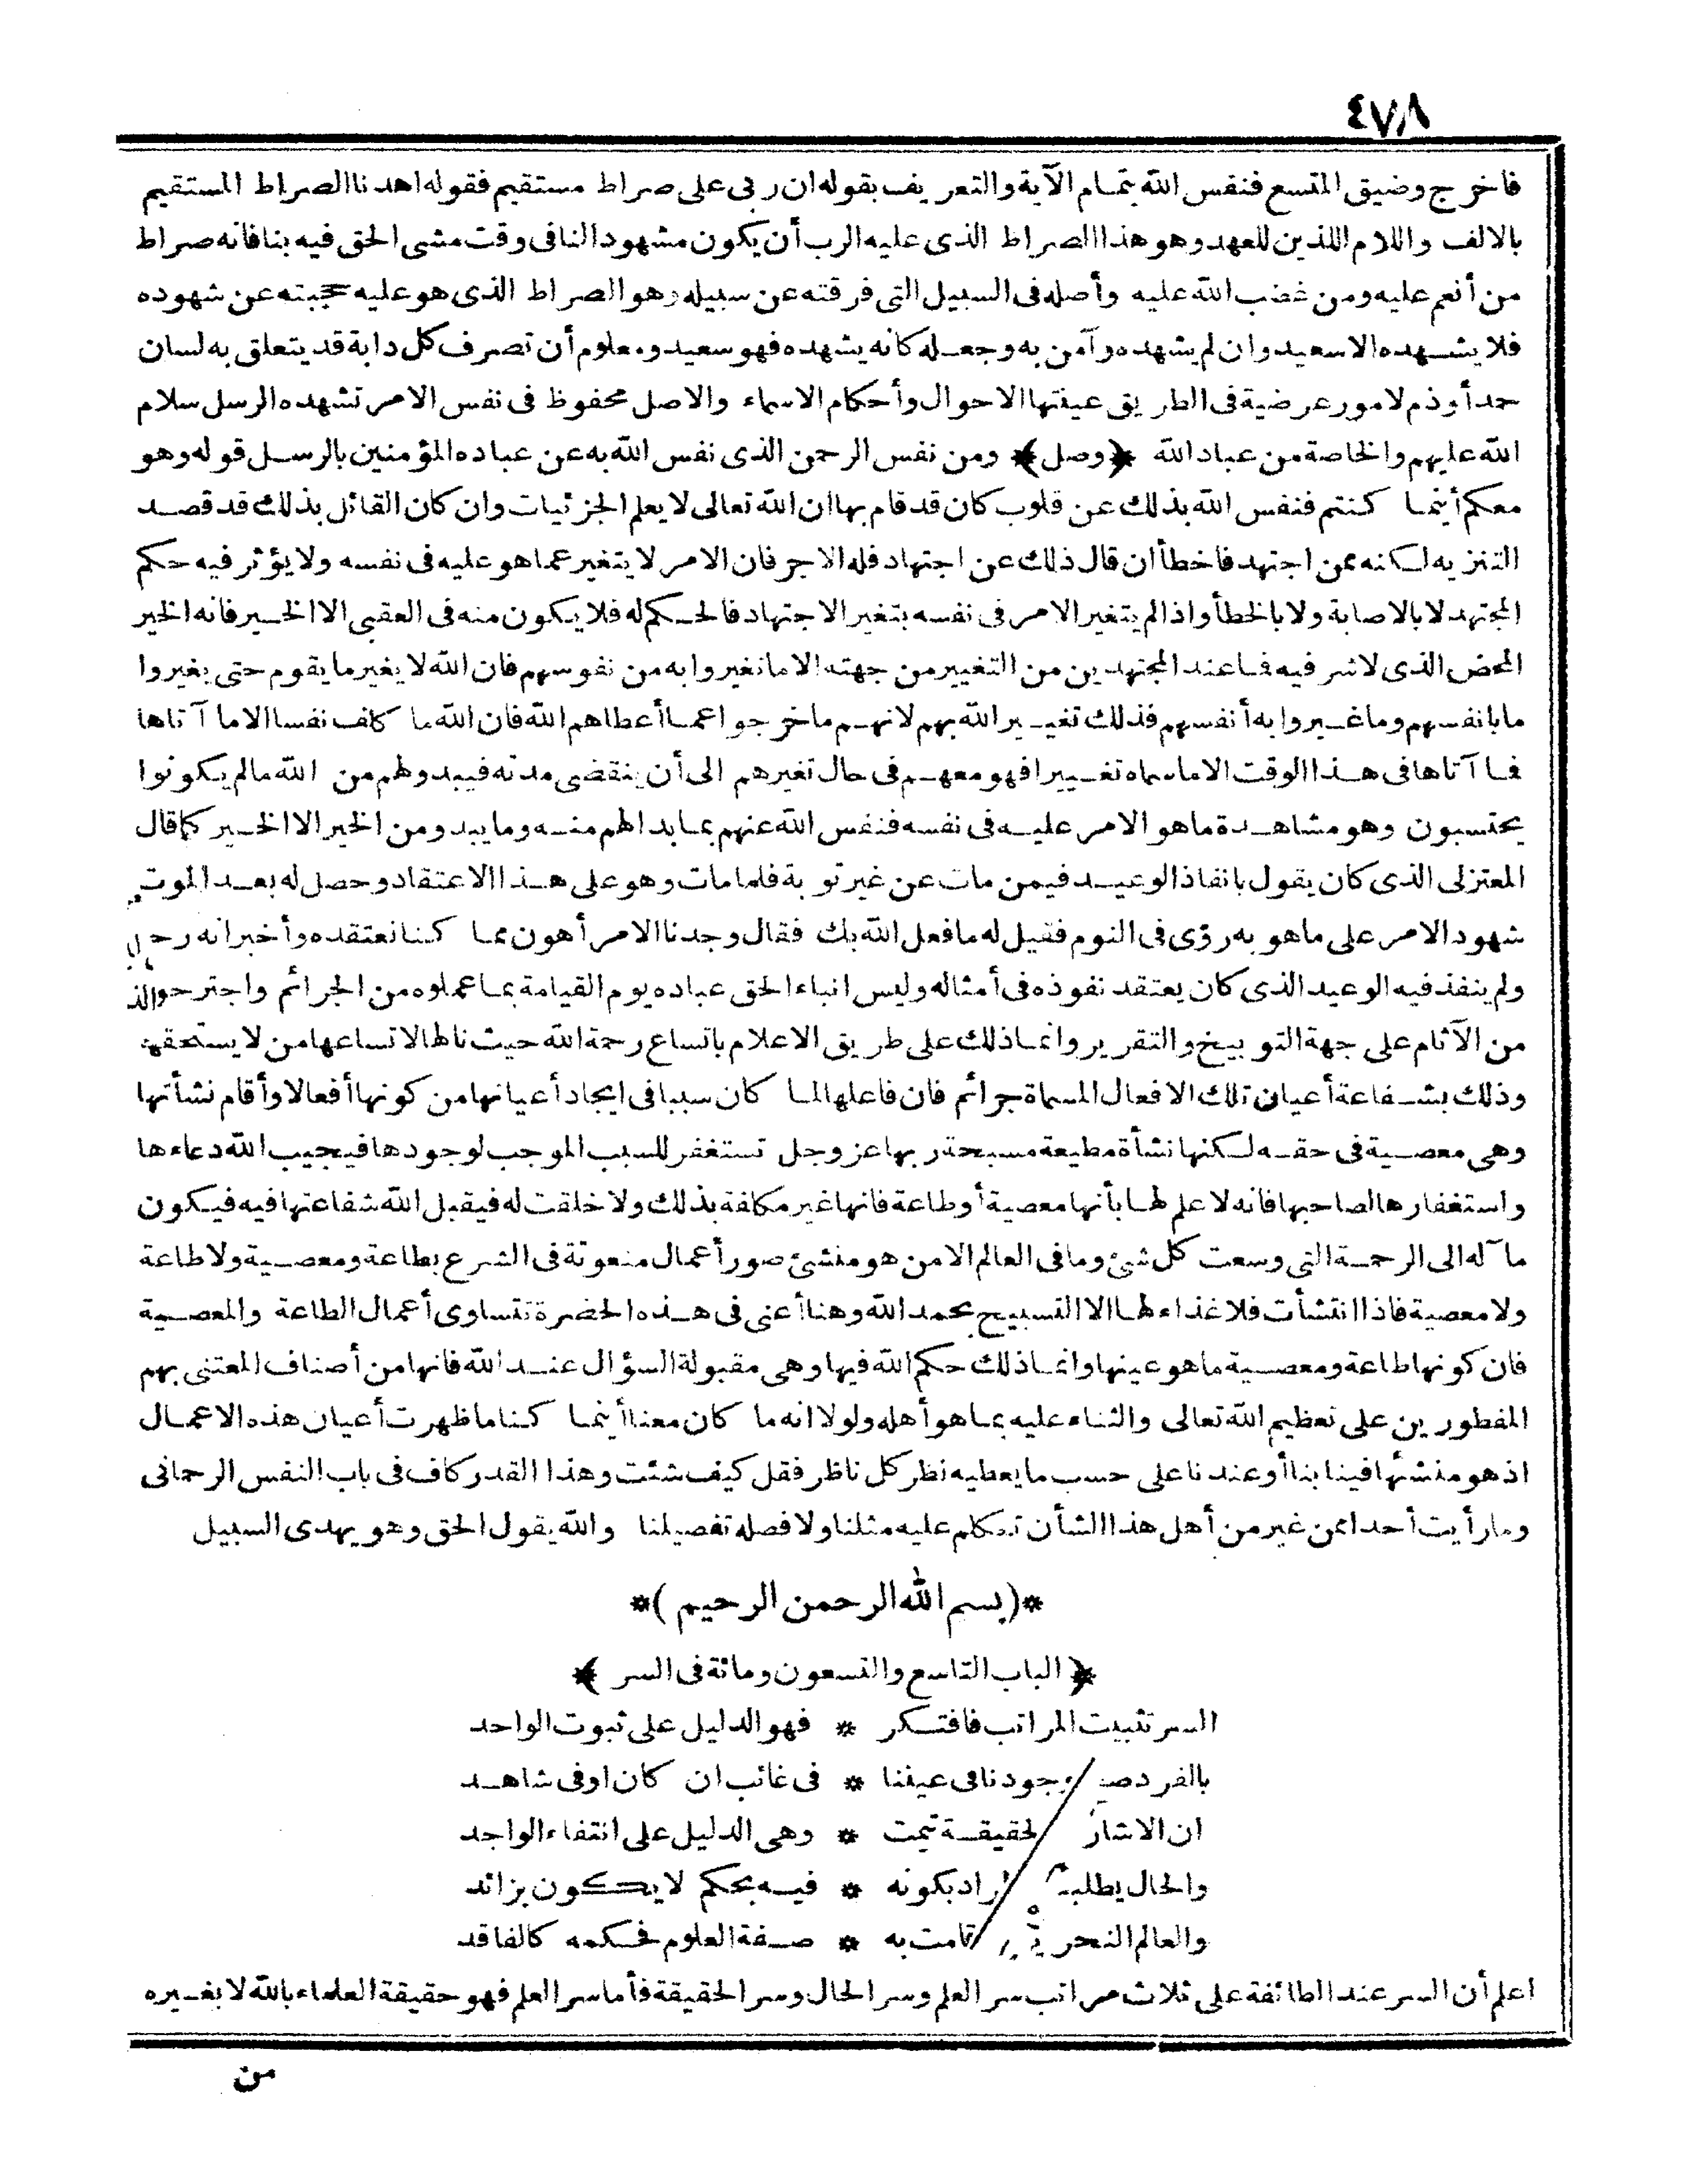 ٤٧٨
فاخرج وضيق المتسع فنفس الله بتمام الآية والتعريف بقوله ان ربى على صراط مستقيم فقوله اهدنا الصراط المستقيم
بالالف واللام اللذين للعهد وهو هذا الصراط الذى عليه الرب أن يكون مشهودا لنا فى وقت مشى الحق فيه بنا فانه صراط
من أنعم عليه ومن غضب الله عليه وأصله فى السبيل التى فرقته عن سبيله وهو الصراط الذى هو عليه حجبته عن شهوده
فلا يشهده الا سعيد وان لم يشهده وآمن به وجعله كانه يشهده فهو سعيد ومعلوم أن تصرف كل دابة قد يتعلق به لسان
حمد أو ذم لامور عرضية فى الطريق عينتها الاحوال وأحكام الاسماء والاصل محفوظ فى نفس الامر تشهده الرسل سلام
الله عليهم والخاصة من عباد الله ﴿وصل﴾ ومن نفس الرحمن الذى نفس الله به عن عباده المؤمنين بالرسل قوله وهو
معكم أينما كنتم فنفس الله بذلك عن قلوب كان قد قام بها ان الله تعالى لا يعلم الجزئيات وان كان القائل بذلك قد قصد
التنزيه لكنه ممن اجتهد فاخطأ ان قال ذلك عن اجتهاد فله الاجر فان الامر لا يتغير عما هو عليه فى نفسه ولا يؤثر فيه حكم
المجتهد لا بالاصابة ولا بالخطأ واذا لم يتغير الامر فى نفسه بتغير الاجتهاد فالحكم له فلا يكون منه فى العقبى الا الخير فانه الخير
المحض الذى لا شر فيه فما عند المجتهدين من التغيير من جهته الا ما تغيروا به من نفوسهم فان الله لا يغير ما بقوم حتى يغيروا
ما بانفسهم وما غيروا به أنفسهم فذلك تغيير الله بهم لانهم ما خرجوا عما أعطاهم الله فان الله ما كلف نفسا الا ما آتاها
فما آتاها فى هذا الوقت الا ما سماه تغييرا فهو معهم فى حال تغيرهم الى أن ينقضى مدته فيبدو لهم من الله ما لم يكونوا
يحتسبون وهو مشاهدة ما هو الامر عليه فى نفسه فنفس الله عنهم بما بدا لهم منه وما يبدو من الخير الا الخير كما قال
المعتزلى الذى كان يقول بانفاذ الوعيد فيمن مات عن غير توبة فلما مات وهو على هذا الاعتقاد وحصل له بعد الموت
شهود الامر على ما هو به رؤى فى النوم فقيل له ما فعل الله بك فقال وجدنا الامر أهون مما كنا نعتقده وأخبر انه رحم
ولم ينفذ فيه الوعيد الذى كان يعتقد نفوذه فى أمثاله وليس انباء الحق عباده يوم القيامة بما عملوه من الجرائم واجترحوا
من الآثام على جهة التوبيخ والتقرير وانما ذلك على طريق الاعلام باتساع رحمة الله حيث نالها لاتساعها من لا يستحقها
وذلك بشفاعة أعيان تلك الافعال المسماة جرائم فان فاعلها لما كان سببا فى ايجاد أعيانها من كونها أفعالا وأقام نشأتها
وهى معصية فى حقه لكنها نشأة مطيعة مسبحة ربها عز وجل تستغفر للسبب الموجب لوجودها فيجيب الله دعاءها
واستغفارها لصاحبها فانه لا علم لها بأنها معصية أو طاعة فانها غير مكلفة بذلك ولا خلقت له فيقبل الله شفاعتها فيه فيكون
مآله الى الرحمة التى وسعت كل شئ وما فى العالم الا من هو منشئ صور أعمال منعوتة فى الشرع بطاعة ومعصية ولا طاعة
ولا معصية فاذا انتشأت فلا غذاء لها الا التسبيح بحمد الله وهنا أعنى فى هذه الحضرة تتساوى أعمال الطاعة والمعصية
فان كونها طاعة ومعصية ما هو عينها وانما ذلك حكم الله فيها وهى مقبولة السؤال عند الله فانها من أصناف المعتنى بهم
المفطورين على تعظيم الله تعالى والثناء عليه بما هو أهله ولولا انه ما كان معنا أينما كنا ما ظهرت أعيان هذه الاعمال
اذ هو منشئها فينا بنا أو عندنا على حسب ما يعطيه نظر كل ناظر فقل كيف شئت وهذا القدر كاف فى باب النفس الرحمانى
وما رأيت أحدا ممن غبر من أهل هذا الشأن تكلم عليه مثلنا ولا فصله تفصيلنا والله يقول الحق وهو يهدى السبيل
*(بسم الله الرحمن الرحيم)*
﴿الباب التاسع والتسعون ومائة فى السر﴾
السر تثبيت المراتب فافتكر * فهو الدليل على ثبوت الواحد
بالفرد وجودنا فى عيننا * فى غائب ان كان او فى شاهد
ان الاشار لحقيقة تمت * وهى الدليل على انتفاء الواجد
والحال يطلبه بكونه * فيه بحكم لا يكون بزائد
والعالم النحر قامت به * صفة العلوم فحكمه كالفاقد
اعلم أن السر عند الطائفة على ثلاث مراتب سر العلم وسر الحال وسر الحقيقة فأما سر العلم فهو حقيقة العلماء بالله لا بغيره
من